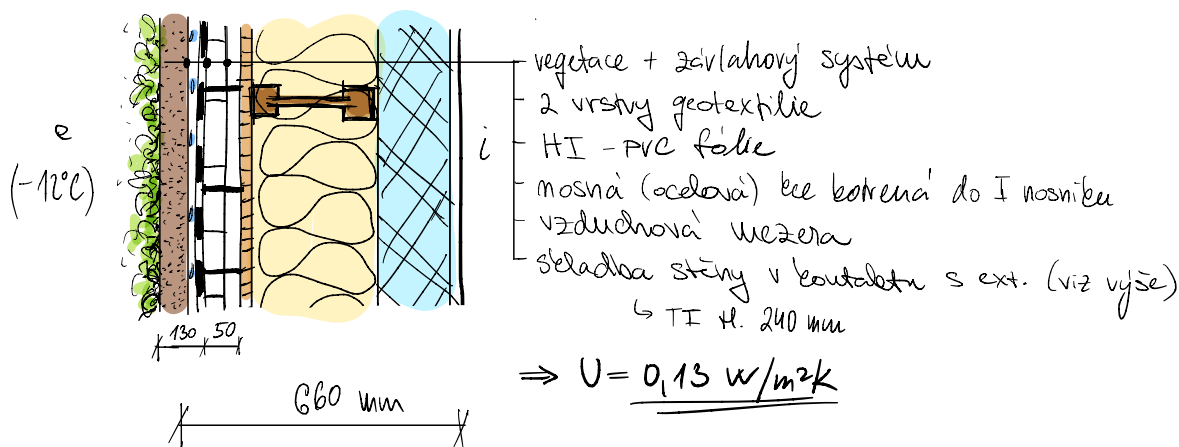 vegetace + závlahový systém
2 vrstvy geotextilie
e
i
HI - PVC fólie
(-12°C)
nosná (ocelová) kce kotvená do I nosníku
vzduchová mezera
skladba stěny v kontaktu s ext. (viz výše)
↳ TI tl. 240 mm
130 50
⇒ U = 0,13 W/m²K
660 mm